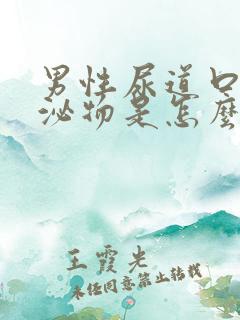 男性尿道口
泌物是怎麼
王霞光
未经同意禁止转载